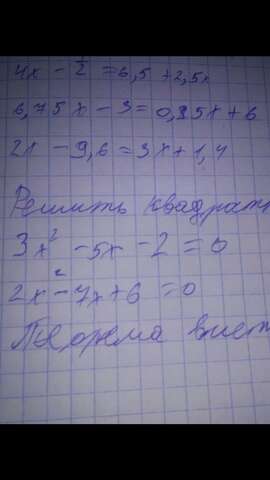 4x - 1/2 = 6,5 + 2,5x
6,75x - 3 = 0,95x + 6
2x - 9,6 = 3x + 1,4
Решить квадратн
3x² - 5x - 2 = 0
2x² - 7x + 6 = 0
Теорема Виет